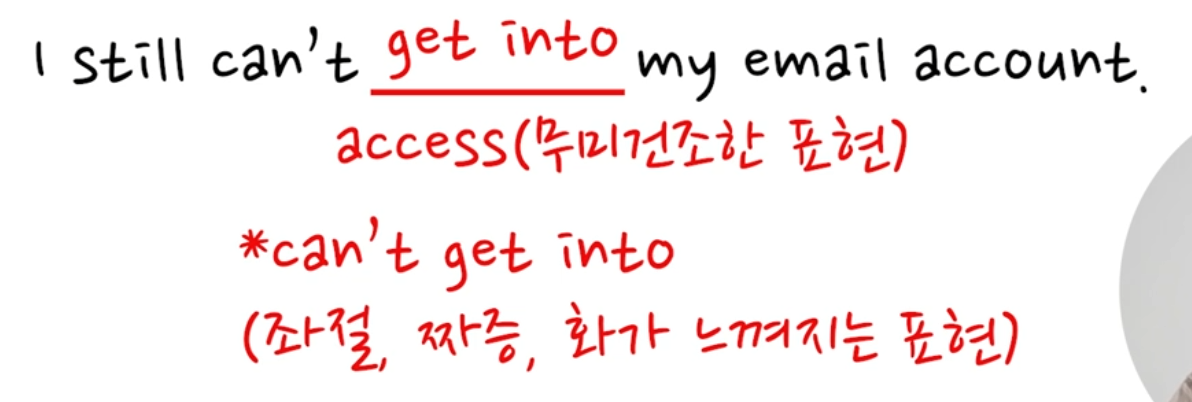 I still can't get into my email account.
access(무미건조한 표현)
*can't get into
(좌절, 짜증, 화가 느껴지는 표현)